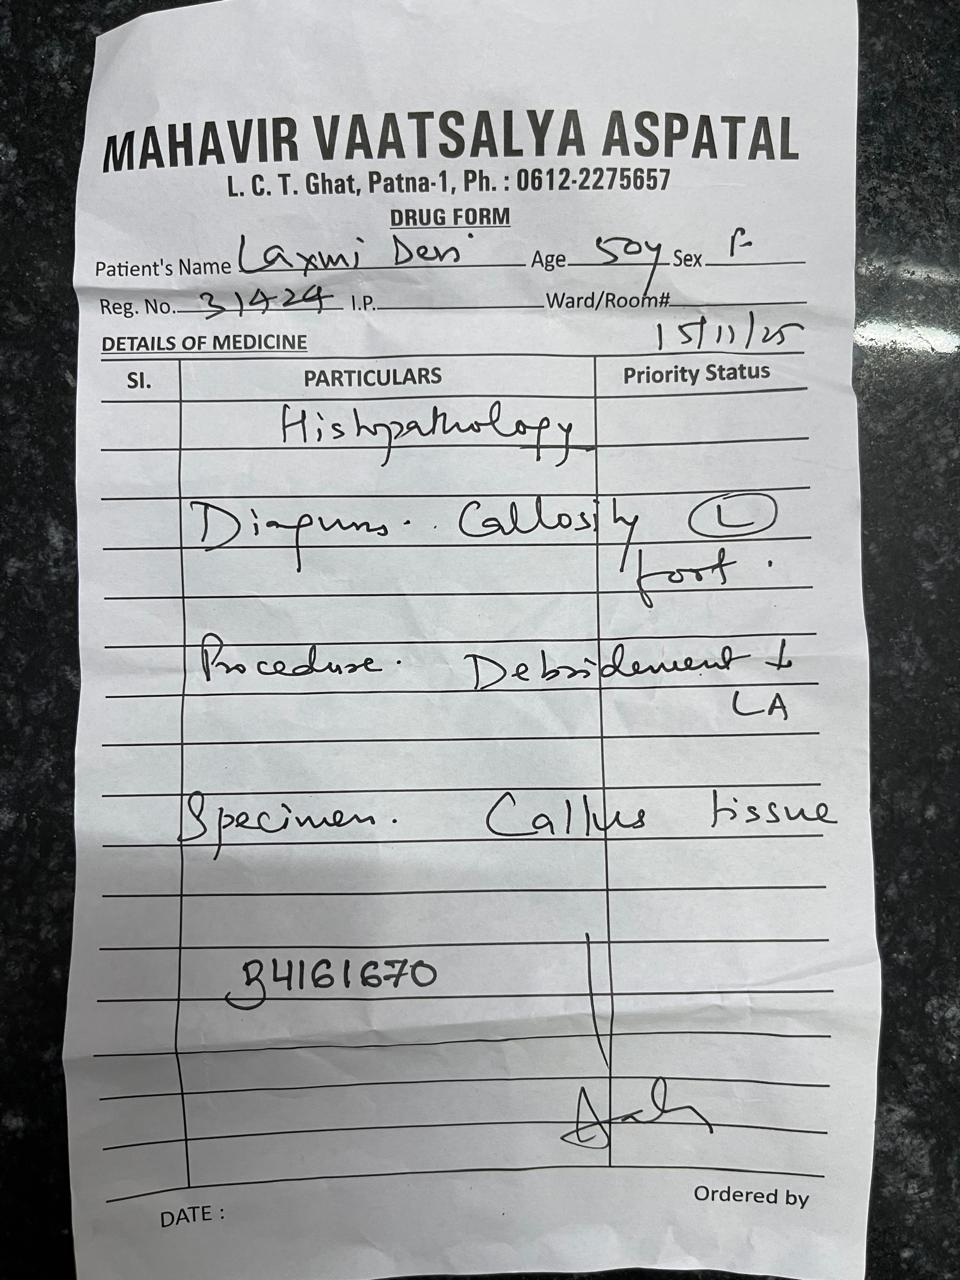 MAHAVIR VAATSALYA ASPATAL
L. C. T. Ghat, Patna-1, Ph. : 0612-2275657
DRUG FORM
Patient's Name Laxmi Devi Age 50y Sex F
Reg. No. 31424 I.P. Ward/Room#
15/11/25
DETAILS OF MEDICINE
SI. PARTICULARS Priority Status
Histopathology
Diagnosis. Callosity L
foot.
Procedure. Debridement
LA
Specimen. Callus tissue
34161670
Ordered by
DATE :